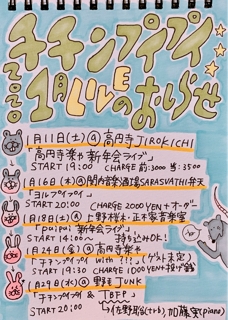 チチンプイプイ
2020
1月LIVEのおしらせ
1月11日(土)@高円寺JIROKICHI
「高円寺楽や新年会ライブ」
START 19:00 CHARGE 前:3000 当:3500
1月16日(木)@関内音楽酒場SARASVATHI弁天
START 20:00 CHARGE 2000YEN+オーダー
1月18日(土)@上野桜木・正木家音楽室
「puipui 新年会ライブ」
START 14:00 持ち込みOK!
1月24日(金)@高円寺楽や
「チチンプイプイ with !!!」(ゲスト未定)
START 19:30 CHARGE 1000YEN+投げ銭
1月29日(水)@野毛JUNK
「チチンプイプイ & TBFP」
START 20:00
加藤実(piano)